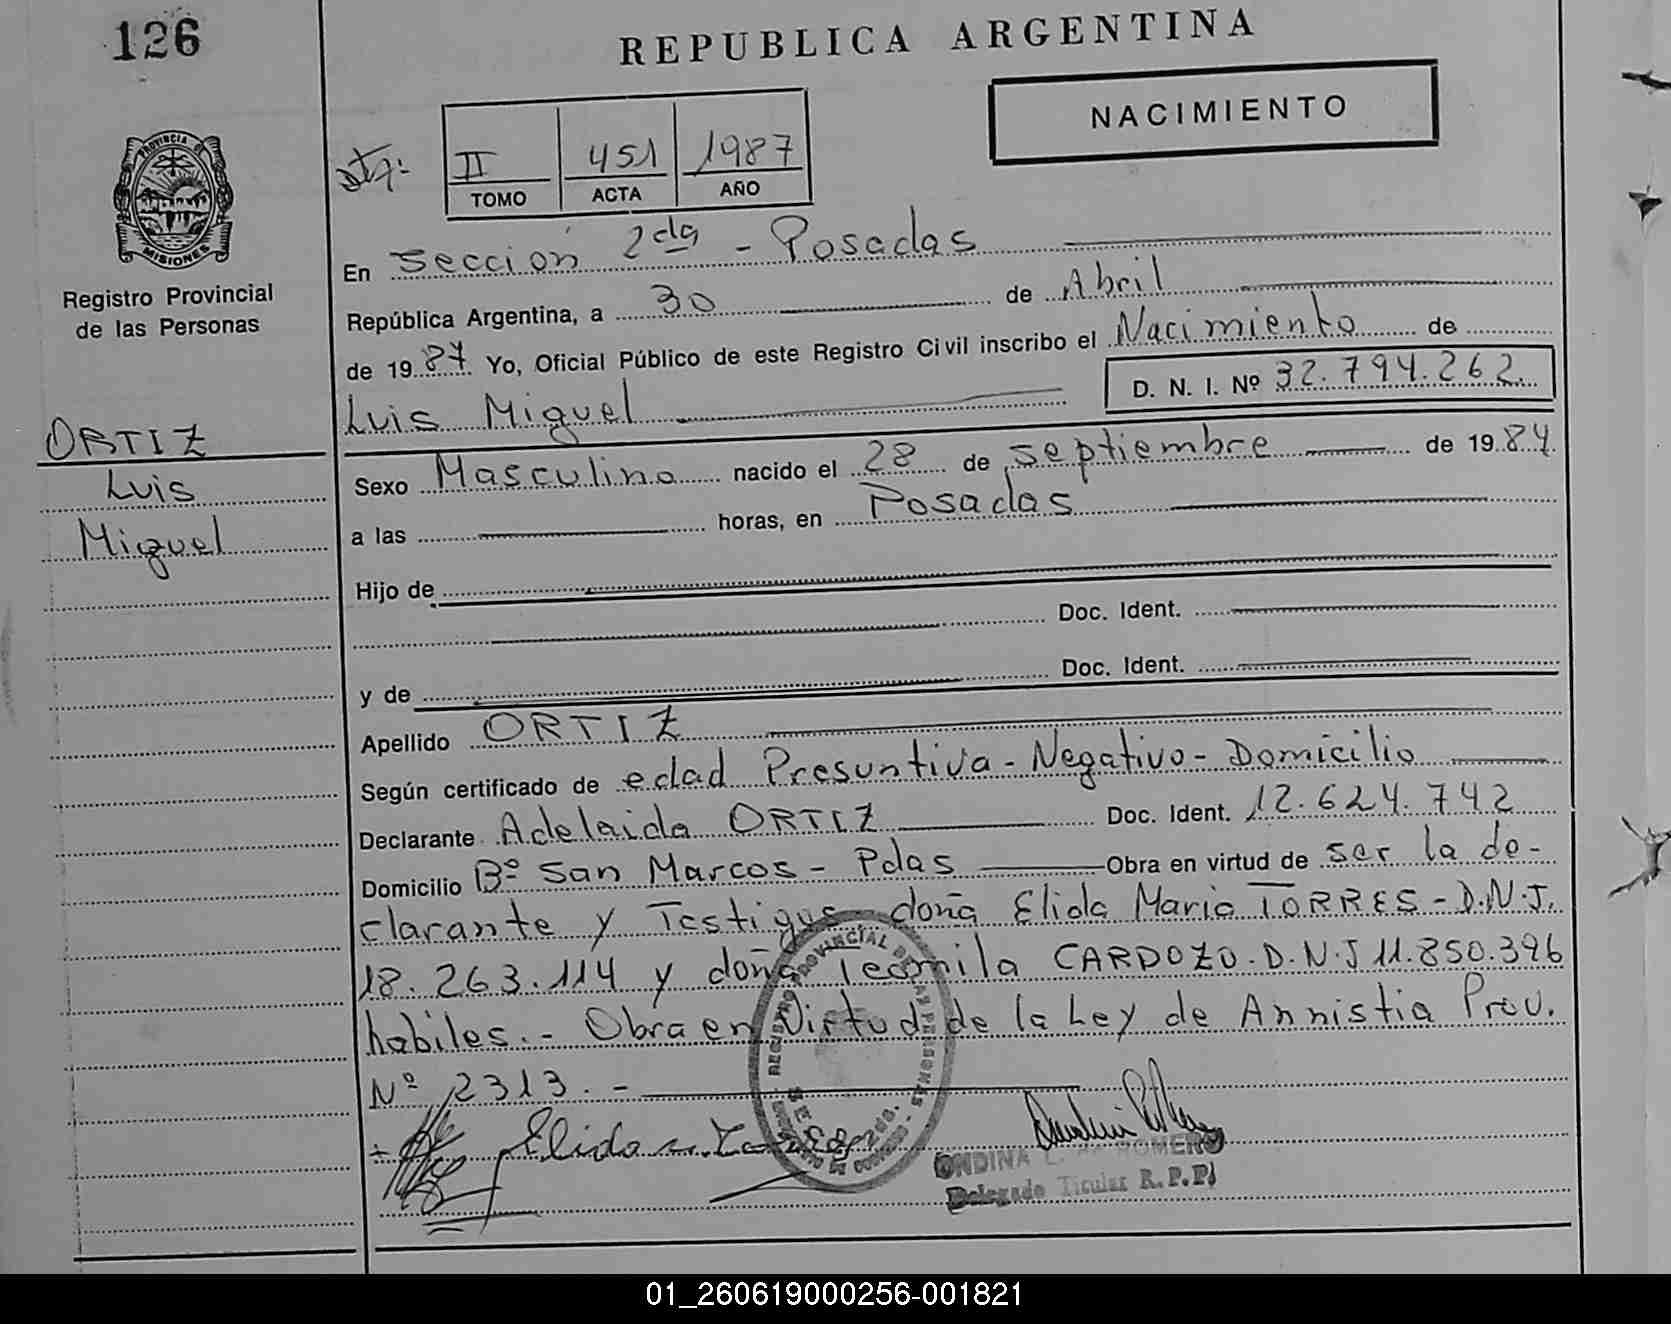 126
REPUBLICA ARGENTINA
NACIMIENTO
II 451 1987
TOMO ACTA AÑO
PROVINCIA DE MISIONES
Registro Provincial
de las Personas
En Sección 2da - Posadas
República Argentina, a 30 de Abril
de 1987 Yo, Oficial Público de este Registro Civil inscribo el Nacimiento de
D. N. I. Nº 32.794.262
Luis Miguel
ORTIZ
Luis
Miguel
Sexo Masculino nacido el 28 de septiembre de 1984
a las horas, en Posadas
Hijo de
Doc. Ident.
y de Doc. Ident.
Apellido ORTIZ
Según certificado de edad Presuntiva - Negativo - Domicilio
Declarante Adelaida ORTIZ Doc. Ident. 12.624.742
Domicilio Bº San Marcos - Pdas Obra en virtud de ser la de-
clarante y Testigos doña Elida Maria TORRES - D.N.I.
18.263.114 y doña Teomila CARDOZO. D.N.I 11.850.396
habiles. - Obra en Virtud de la Ley de Amnistia Prov.
Nº 2313. -
REGISTRO PROVINCIAL DE LAS PERSONAS
Elida
ONDINA ROMERO
Delegado Titular R.P.P.
01_260619000256-001821